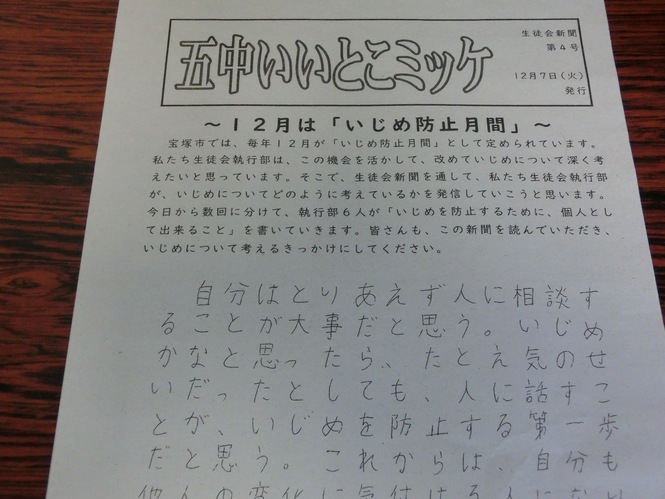 五中いいとこミッケ
生徒会新聞
第4号
12月7日(火)
発行
～12月は「いじめ防止月間」～
宝塚市では、毎年12月が「いじめ防止月間」として定められています。
私たち生徒会執行部は、この機会を活かして、改めていじめについて深く考
えたいと思っています。そこで、生徒会新聞を通して、私たち生徒会執行部
が、いじめについてどのように考えているかを発信していこうと思います。
今日から数回に分けて、執行部6人が「いじめを防止するために、個人とし
て出来ること」を書いていきます。皆さんも、この新聞を読んでいただき、
いじめについて考えるきっかけにしてください。
自分はとりあえず人に相談す
ることが大事だと思う。いじめ
かなと思ったら、たとえ気のせ
いだったとしても、人に話すこ
とが、いじめを防止する第一歩
だと思う。これからは、自分も
他人の変化に気付ける人になり